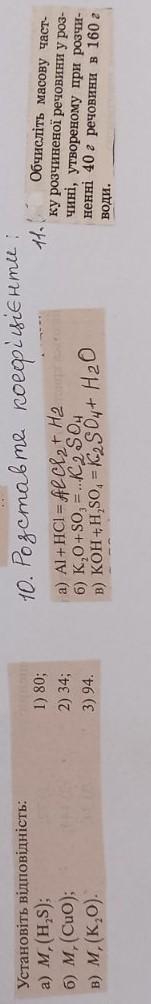 Установіть відповідність:
а) Mᵣ (H₂S); 1) 80;
б) Mᵣ (CuO); 2) 34;
в) Mᵣ (K₂O). 3) 94.
10. Розставте коефіцієнти:
а) Al + HCl = AlCl₂ + H₂
б) K₂O + SO₃ = ...K₂SO₄
в) KOH + H₂SO₄ = K₂SO₄ + H₂O
11.
Обчисліть масову част-
ку розчиненої речовини у роз-
чині, утвореному при розчи-
ненні 40 г речовини в 160 г
води.